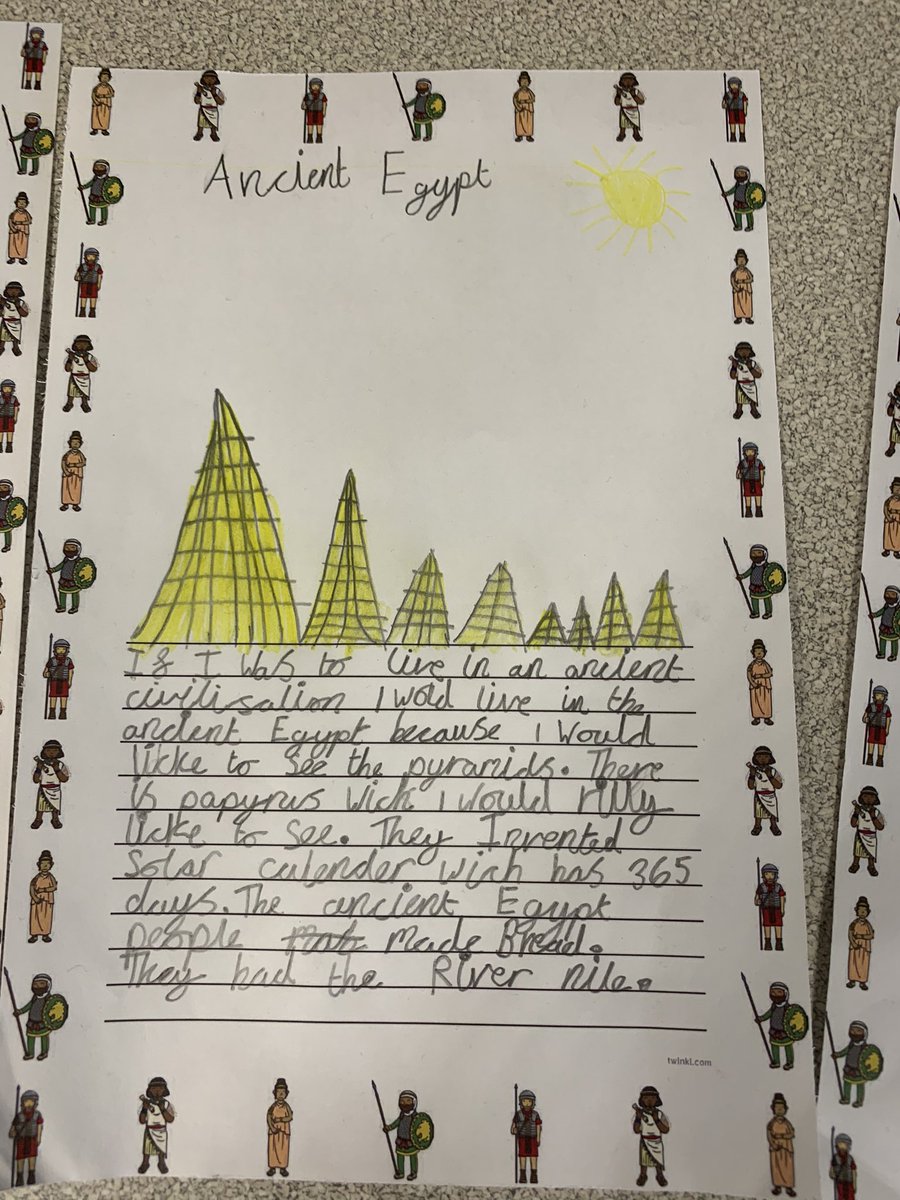 Ancient Egypt
If I was to live in an ancient
civilisation I wold live in the
ancient Egypt because I would
licke to see the pyramids. There
is papyrus wich I would rilly
licke to see. They Invented
Solar calender wich has 365
days. The ancient Egypt
people made Bread.
They had the River nile.
twinkl.com